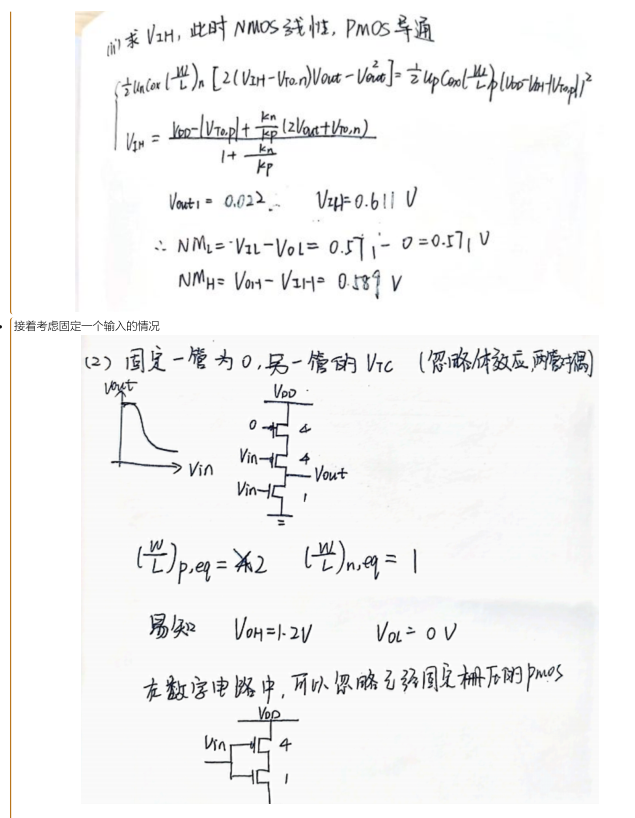 (ii) 求 VIH, 此时 NMOS 线性, PMOS 导通
½ un Cox (W/L)n [2(VIH-VT0,n)Vout-Vout²] = ½ up Cox (W/L)p (VDD-VIH-|VT0,p|)²
VIH = (VDD-|VT0,p|+ kn/kp (2Vout+VT0,n)) / (1+ kn/kp)
Vout1 = 0.022 VIH=0.611 V
∴ NML = VIL-VOL = 0.571 - 0 = 0.571 V
NMH = VOH - VIH = 0.589 V
接着考虑固定一个输入的情况
(2) 固定一管为0, 另一管的 VTC (忽略体效应, 两管对偶)
Vout
Vin
VDD
0 4
Vin 4
Vout
Vin 1
(W/L)p,eq = 2 (W/L)n,eq = 1
易知 VOH=1.2V VOL=0V
在数字电路中, 可以忽略已经固定栅压的pmos
VDD
Vin 4
1